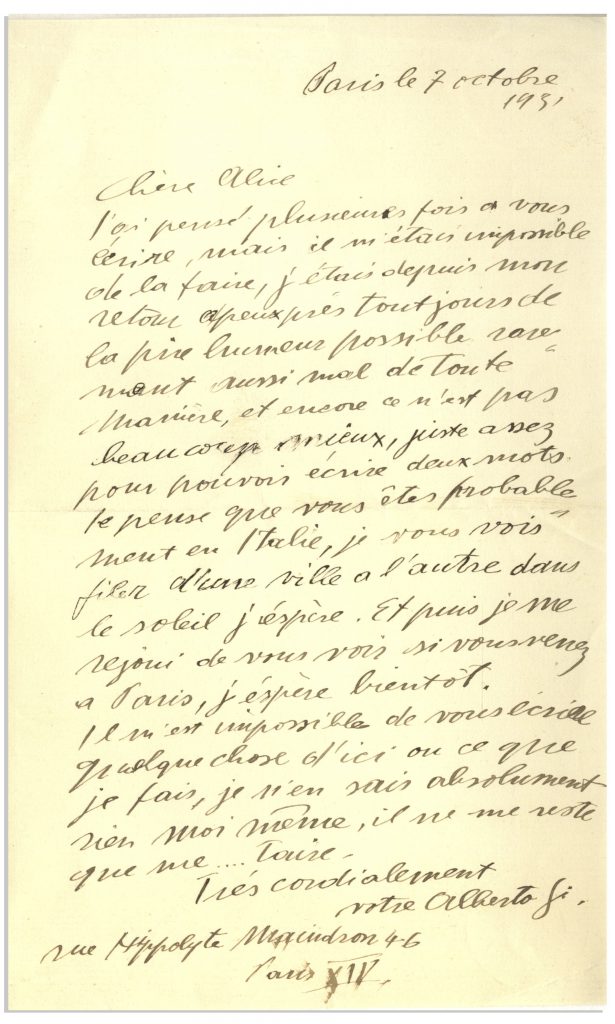 Paris le 7 octobre
1931
Chère Alice
J'ai pensé plusieures fois a vous
écrire, mais il m'était impossible
de la faire, j'étais depuis mon
retour apeuxprés toutjours de
la pire humeur possible rare-
ment aussi mal de toute
manière, et encore ce n'est pas
beaucoup mieux, juste assez
pour pouvoir écrire deux mots.
Je pense que vous êtes probable-
ment en Italie, je vous vois
filer d'une ville a l'autre dans
le soleil j'éspère. Et puis je me
rejoui de vous voir si vous venez
a Paris, j'éspère bientôt.
Il m'est impossible de vous écrire
quelque chose d'ici ou ce que
je fais, je n'en sais absolument
rien moi même, il ne me reste
que me .... taire.
Trés cordialement
votre Alberto Gi.
rue Hippolyte Maindron 46
Paris XIV.